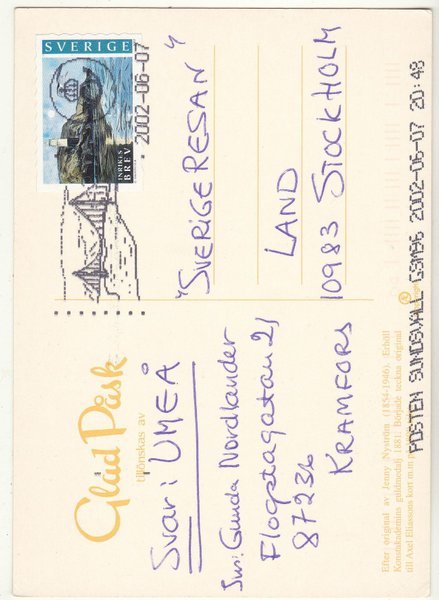 Glad Påsk
tillönskas av
Svar: UMEÅ
Gunda Nordlander
87236
KRAMFORS
Efter original av Jenny Nyström (1854-1946). Erhöll
Konstakademins guldmedalj 1881. Började teckna original
till Axel Eliassons kort
SVERIGE
INRIKES
BREV
2002-06-07
"SVERIGERESAN"
LAND
10983 STOCKHOLM
POSTEN SUNDSVALL 2002-06-07 20:48